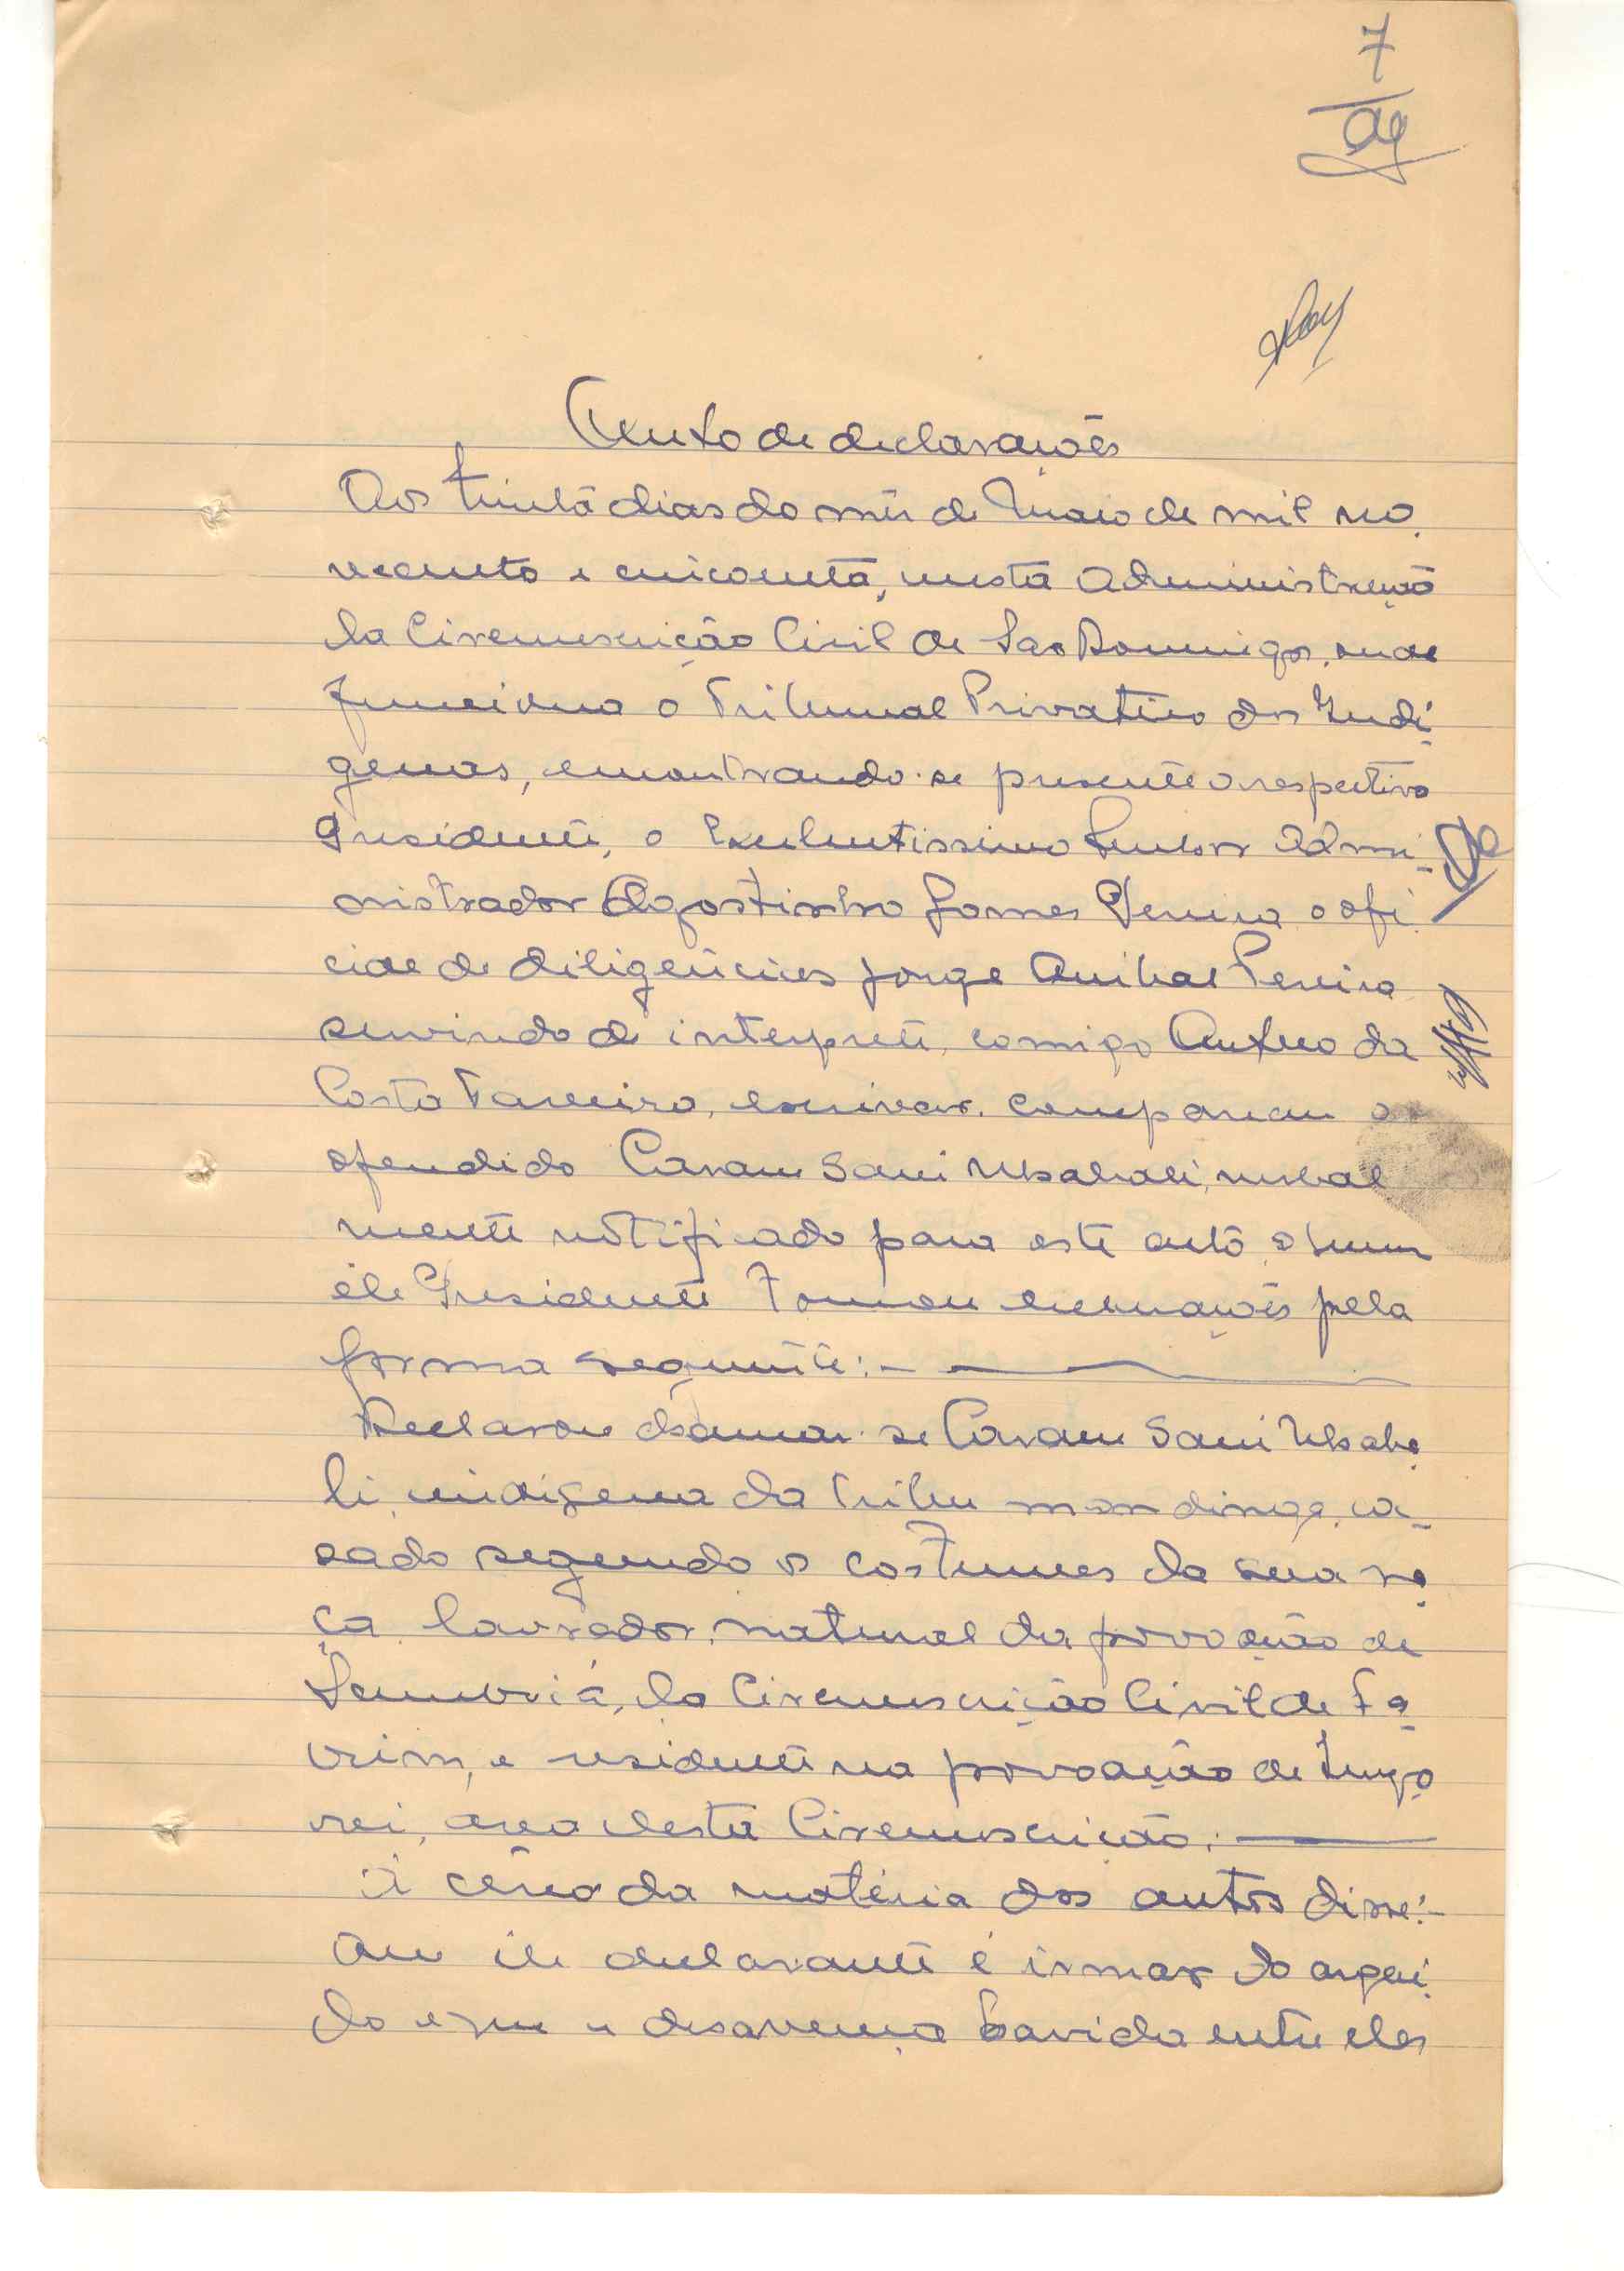 7
Auto de declarações
Aos trinta dias do mês de Maio de mil no-
vecento e cincoenta, nesta Administração
da Circunscrição Civil de São Domingos, onde
funciona o Tribunal Privativo dos Indí-
genas, encontrando-se presente o respectivo
Presidente, o Excelentissimo Senhor Admi-
nistrador Agostinho Gomes Pereira o ofi-
cial de diligências Jorge Anibal Pereira
servindo de interprete, comigo Antero da
Costa escrivão, compareceu o
ofendido Caram Sani verbal
mente notificado para este auto,
ele Presidente tomou declarações pela
forma seguinte:-
Declarou chamar-se Caram Sani
li, indigena da tribu mandinga, ca-
sado segundo os costumes da sua ra-
ça, lavrador, natural da povoação de
da Circunscrição Civil de Fa-
rim, e residente na povoação de
rei, area desta Circunscrição.
À cêrca da matéria dos autos disse:-
Que ele declarante é irmão do argui-
do e que a desavença havida entre eles